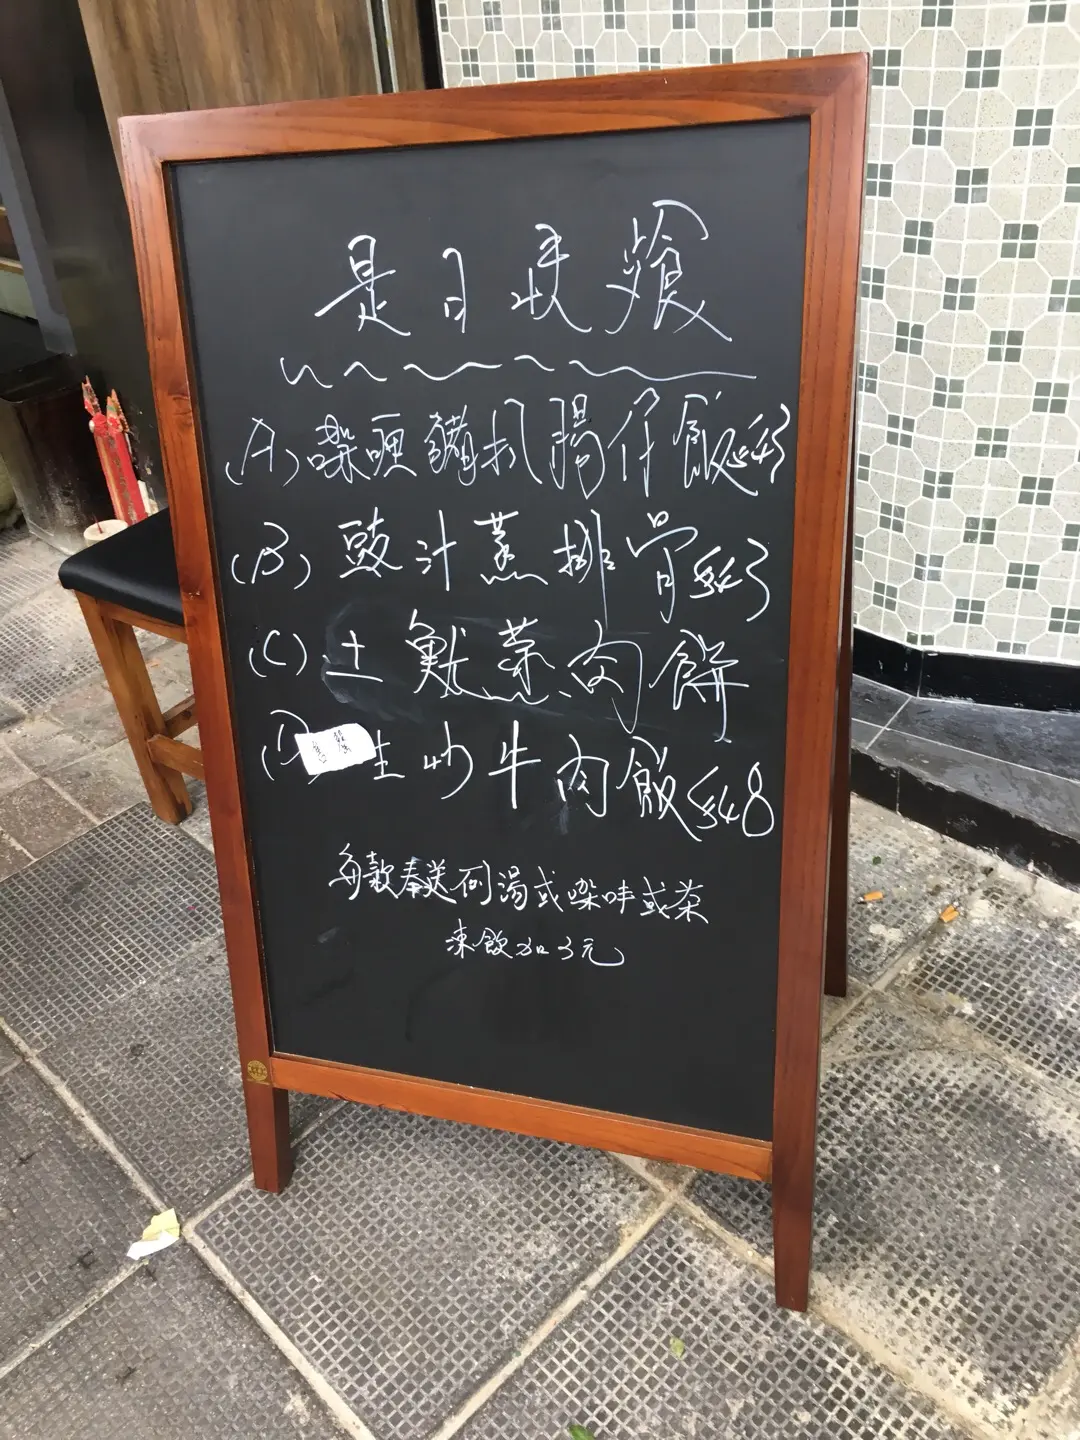 是日快餐
(A) 咖喱豬扒腸仔飯 $43
(B) 豉汁蒸排骨 $43
(C) 土魷蒸肉餅
(D) 售罄 生炒牛肉飯 $48
每款奉送例湯或咖啡或茶
凍飲加3元